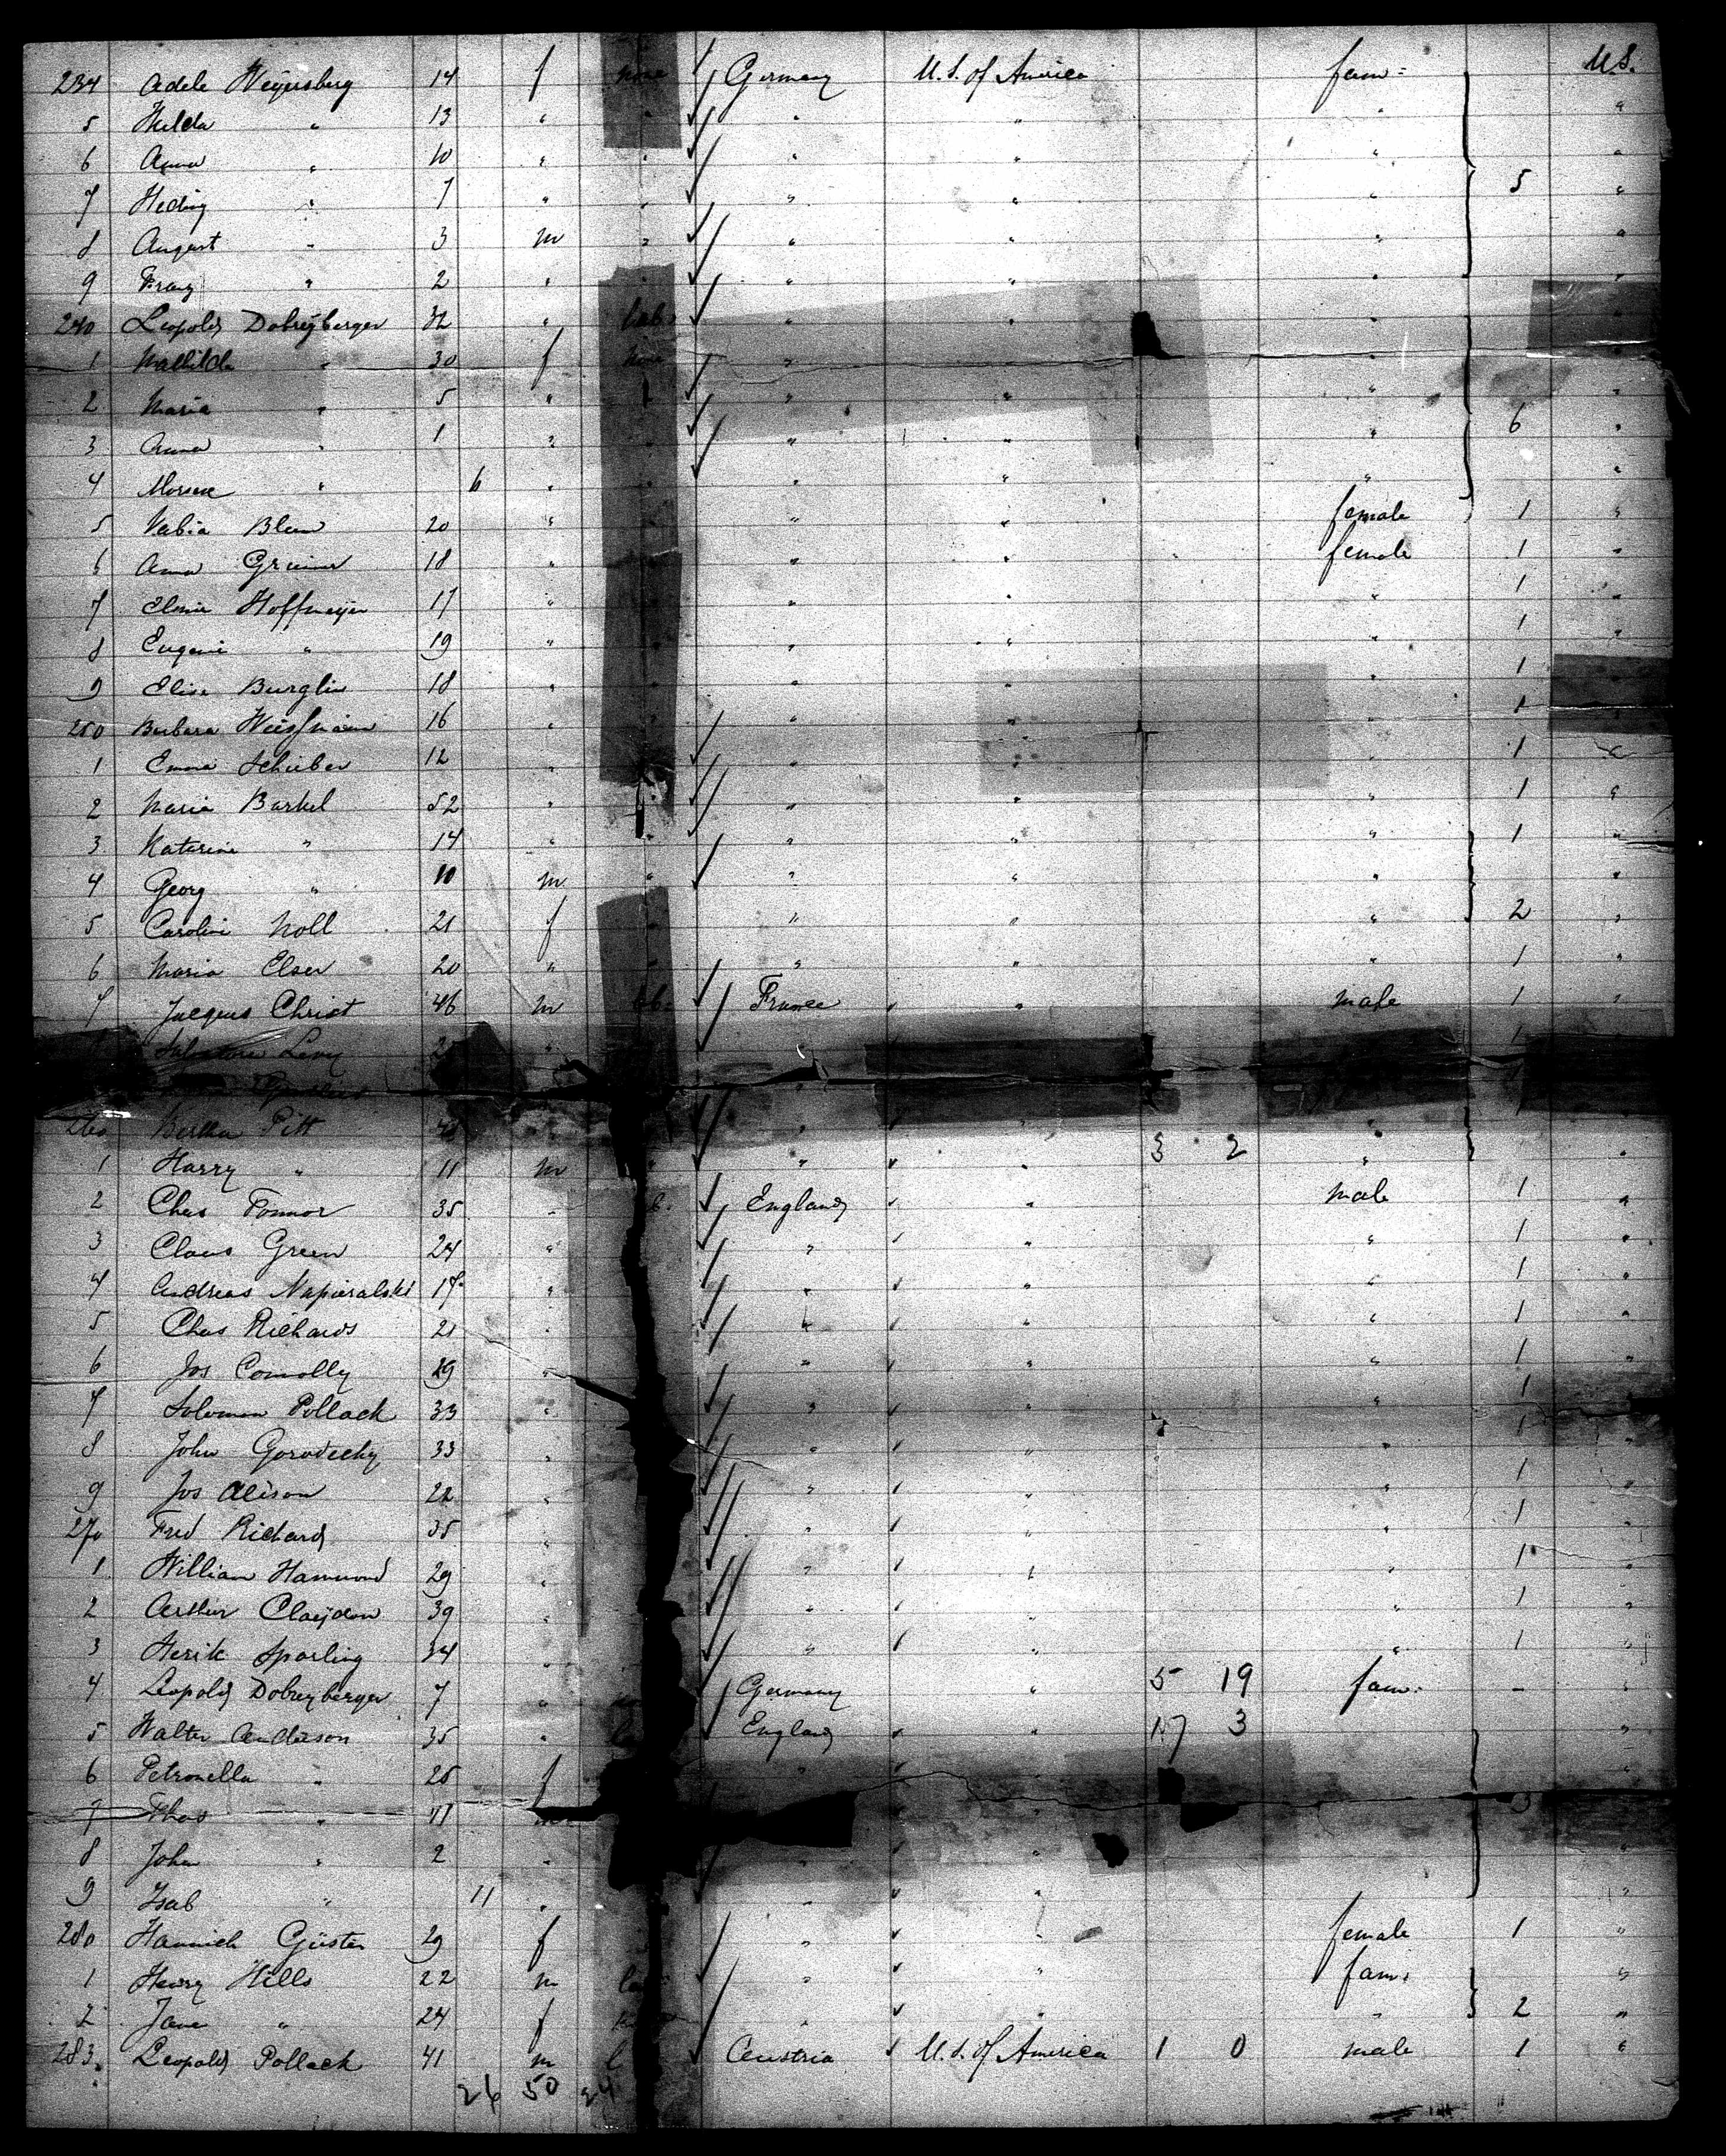 234 Adele Weyersberg 14 f none Germany U.S. of America fam: U.S.
5 Hulda " 13 " " " " " "
6 Anna " 10 " " " " " "
7 Hedwig " 7 " " " " " 5 "
8 August " 3 m " " " " "
9 Franz " 2 " " " " " "
240 Leopold Dobreyberger 32 " lab. " " "
1 Mathilda " 30 f none " "
2 Maria " 5 " " " " "
3 Anna " 1 " " " " 6 "
4 " 6 " " " " "
5 20 " " " female 1 "
6 Anna 18 " " " female 1 "
7 Hoffmeyer 17 " " " " 1 "
8 Eugenie " 19 " " " " 1 "
9 Elise Burglin 18 " " " " 1
250 Barbara 16 " " " " 1
1 Emma Schieber 12 " " " " 1 "
2 Maria Barkel 52 " " " " 1 "
3 Katerine " 14 " " " " " 1 "
4 Georg " 10 m " " " " "
5 Caroline Noll 21 f " " " 2 "
6 Maria Elser 20 " " " " 1 "
7 Jacques Christ 46 m lab. France " male 1 "
Levy " " 1
260 Bertha Pitt " " "
1 Harry " 11 m " " " 3 2 " "
2 Chas Connor 35 " England " male 1 "
3 Claus Green 24 " " " " 1 "
4 Andreas Napieralski 17 " " " " 1 "
5 Chas Richards 21 " " " " 1 "
6 Jos Connolly 29 " " " " 1 "
7 Solomon Pollack 33 " " " " 1
8 John Gorodecky 33 " " " " 1 "
9 Jos Alison 22 " " " " 1 "
270 Fred Richards 35 " " " " 1 "
1 William Hammond 29 " " " " 1 "
2 Arthur Claydon 39 " " " " 1 "
3 Herik Sparling 34 " " " " 1 "
4 Leopold Dobreyberger 7 " Germany " 5 19 fam: - "
5 Walter Anderson 35 " England " 17 3 "
6 Petronella " 25 f " " "
7 Thos " 11 " 3
8 John " 2 " " " "
9 Isab " 11 " " " "
280 Hannich Güster 29 f " " female 1 "
1 Henry Hills 22 m " " fam: "
2 Jane " 24 f " " " 2 "
283. Leopold Pollack 41 m Austria U.S. of America 1 0 male 1 "
26 50 24